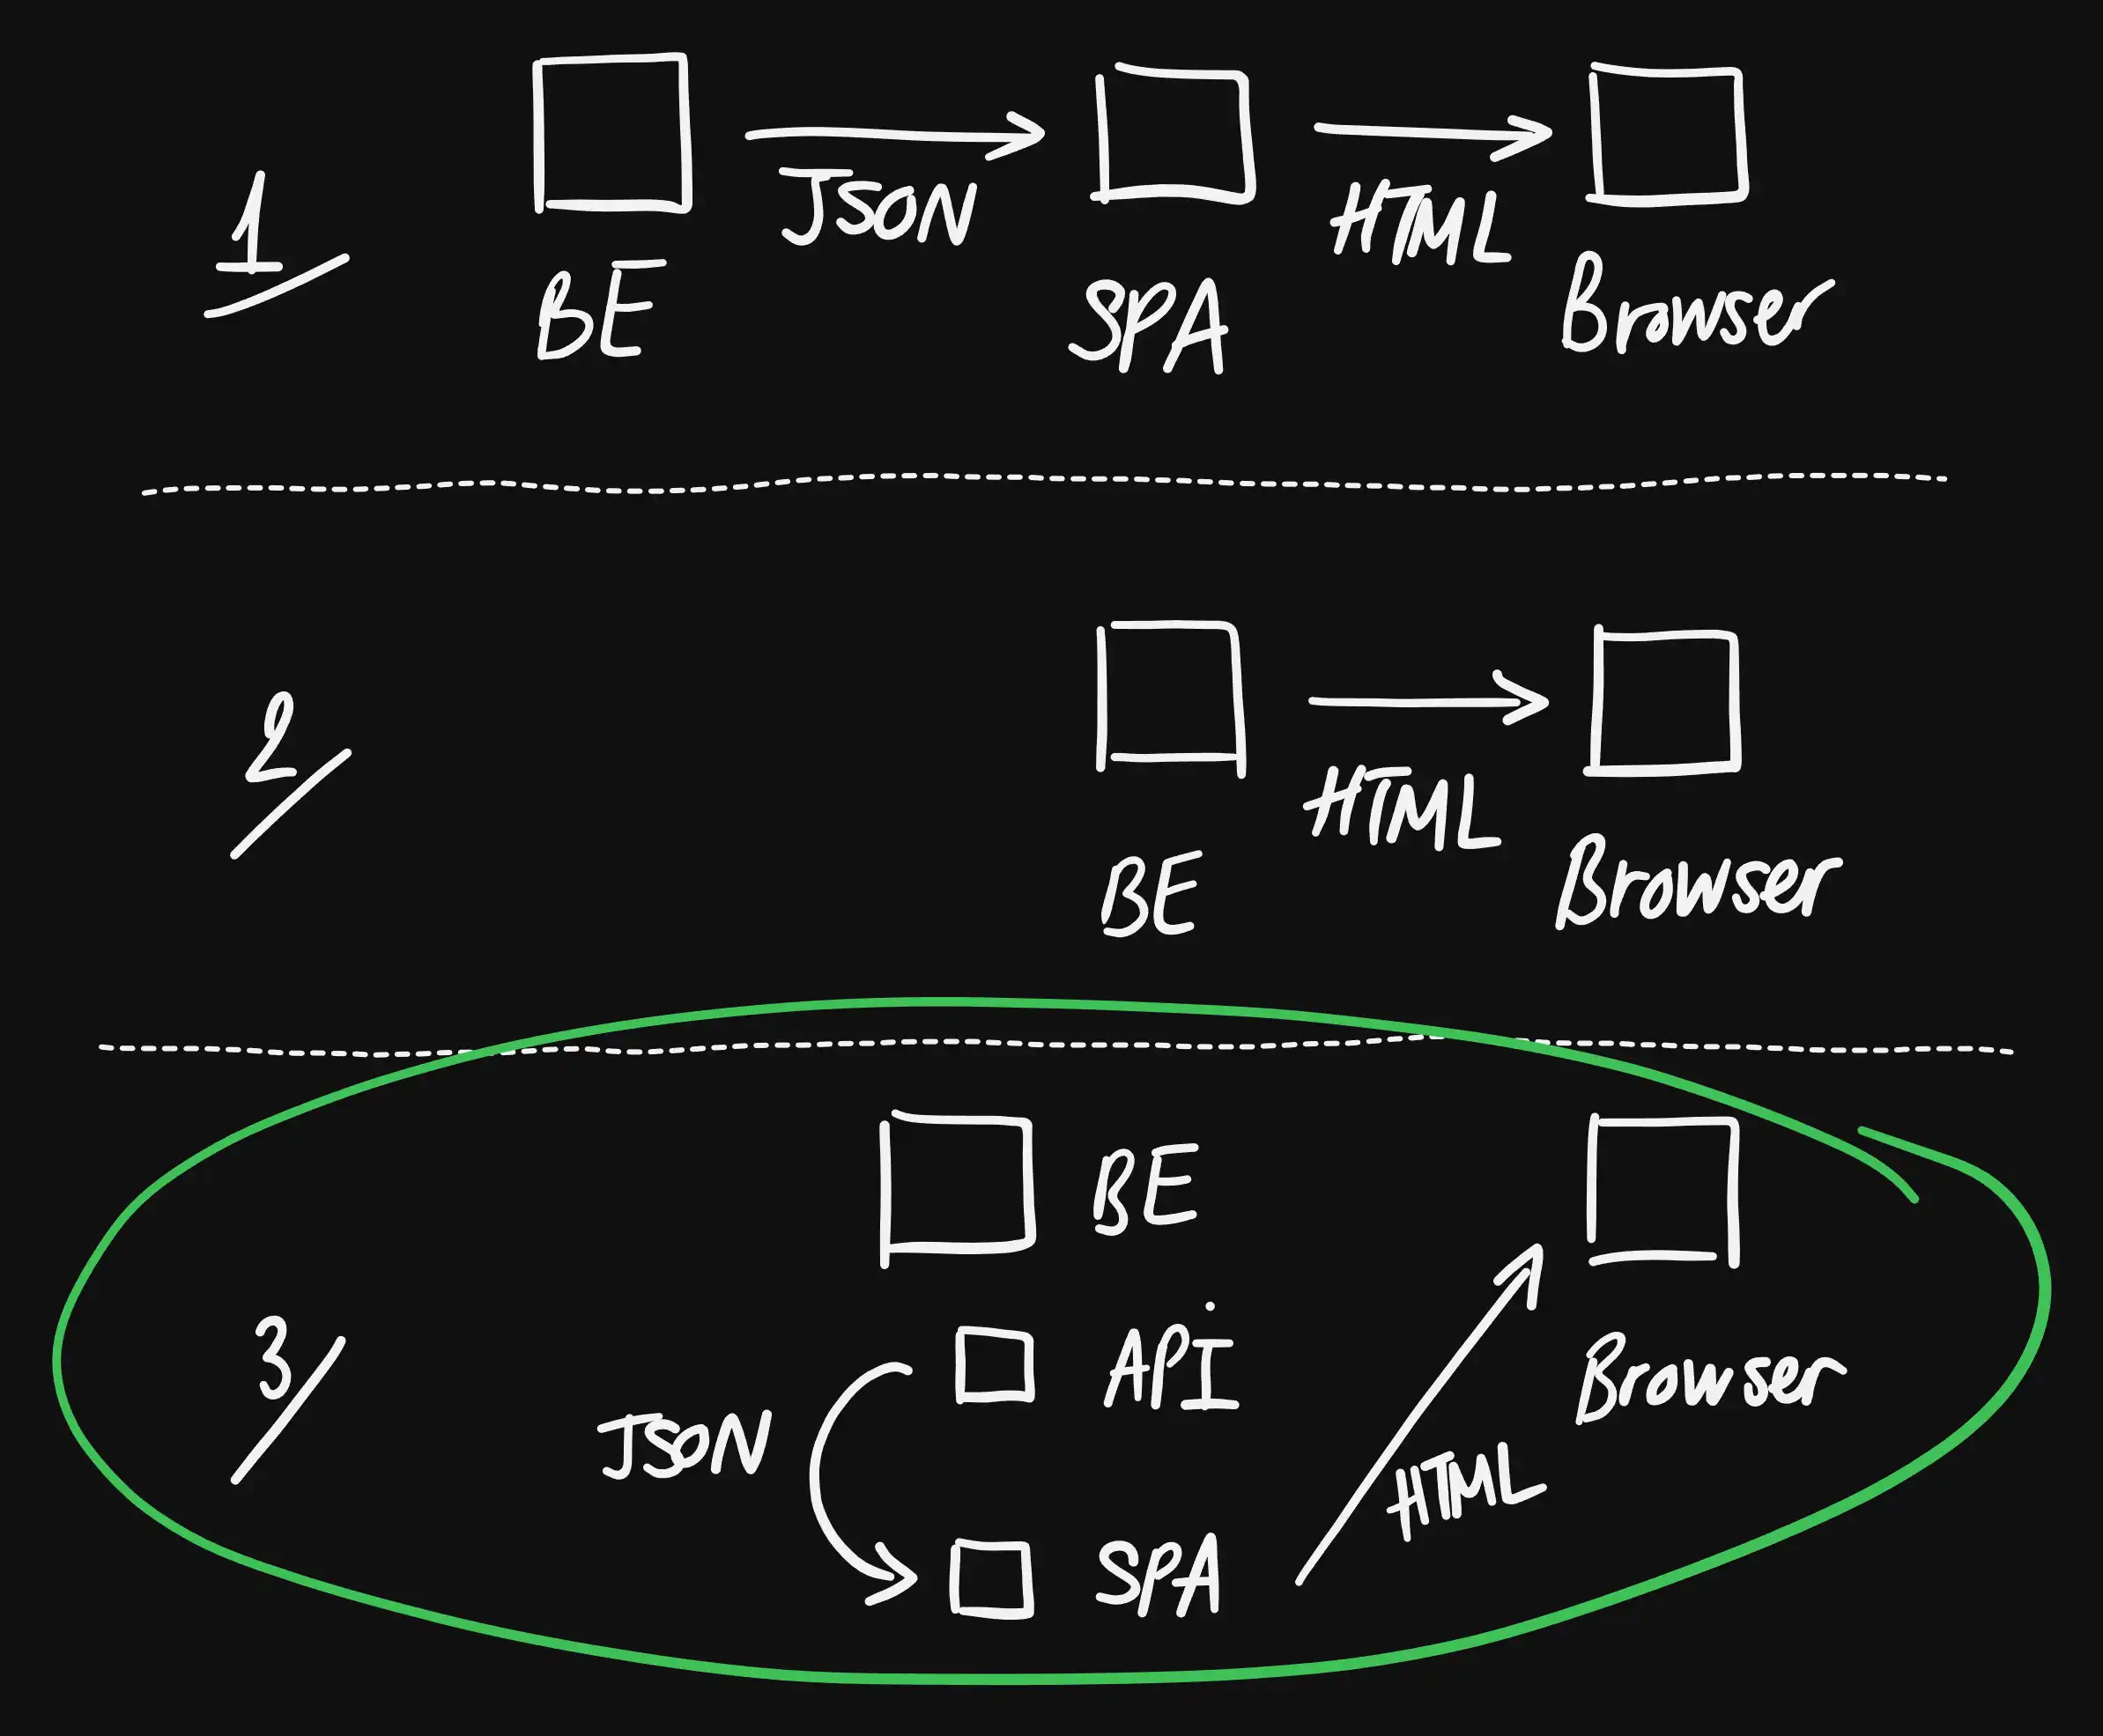 1
JSON
HTML
BE
SPA
Browser
2
HTML
BE
Browser
BE
3
API
Browser
JSON
HTML
SPA